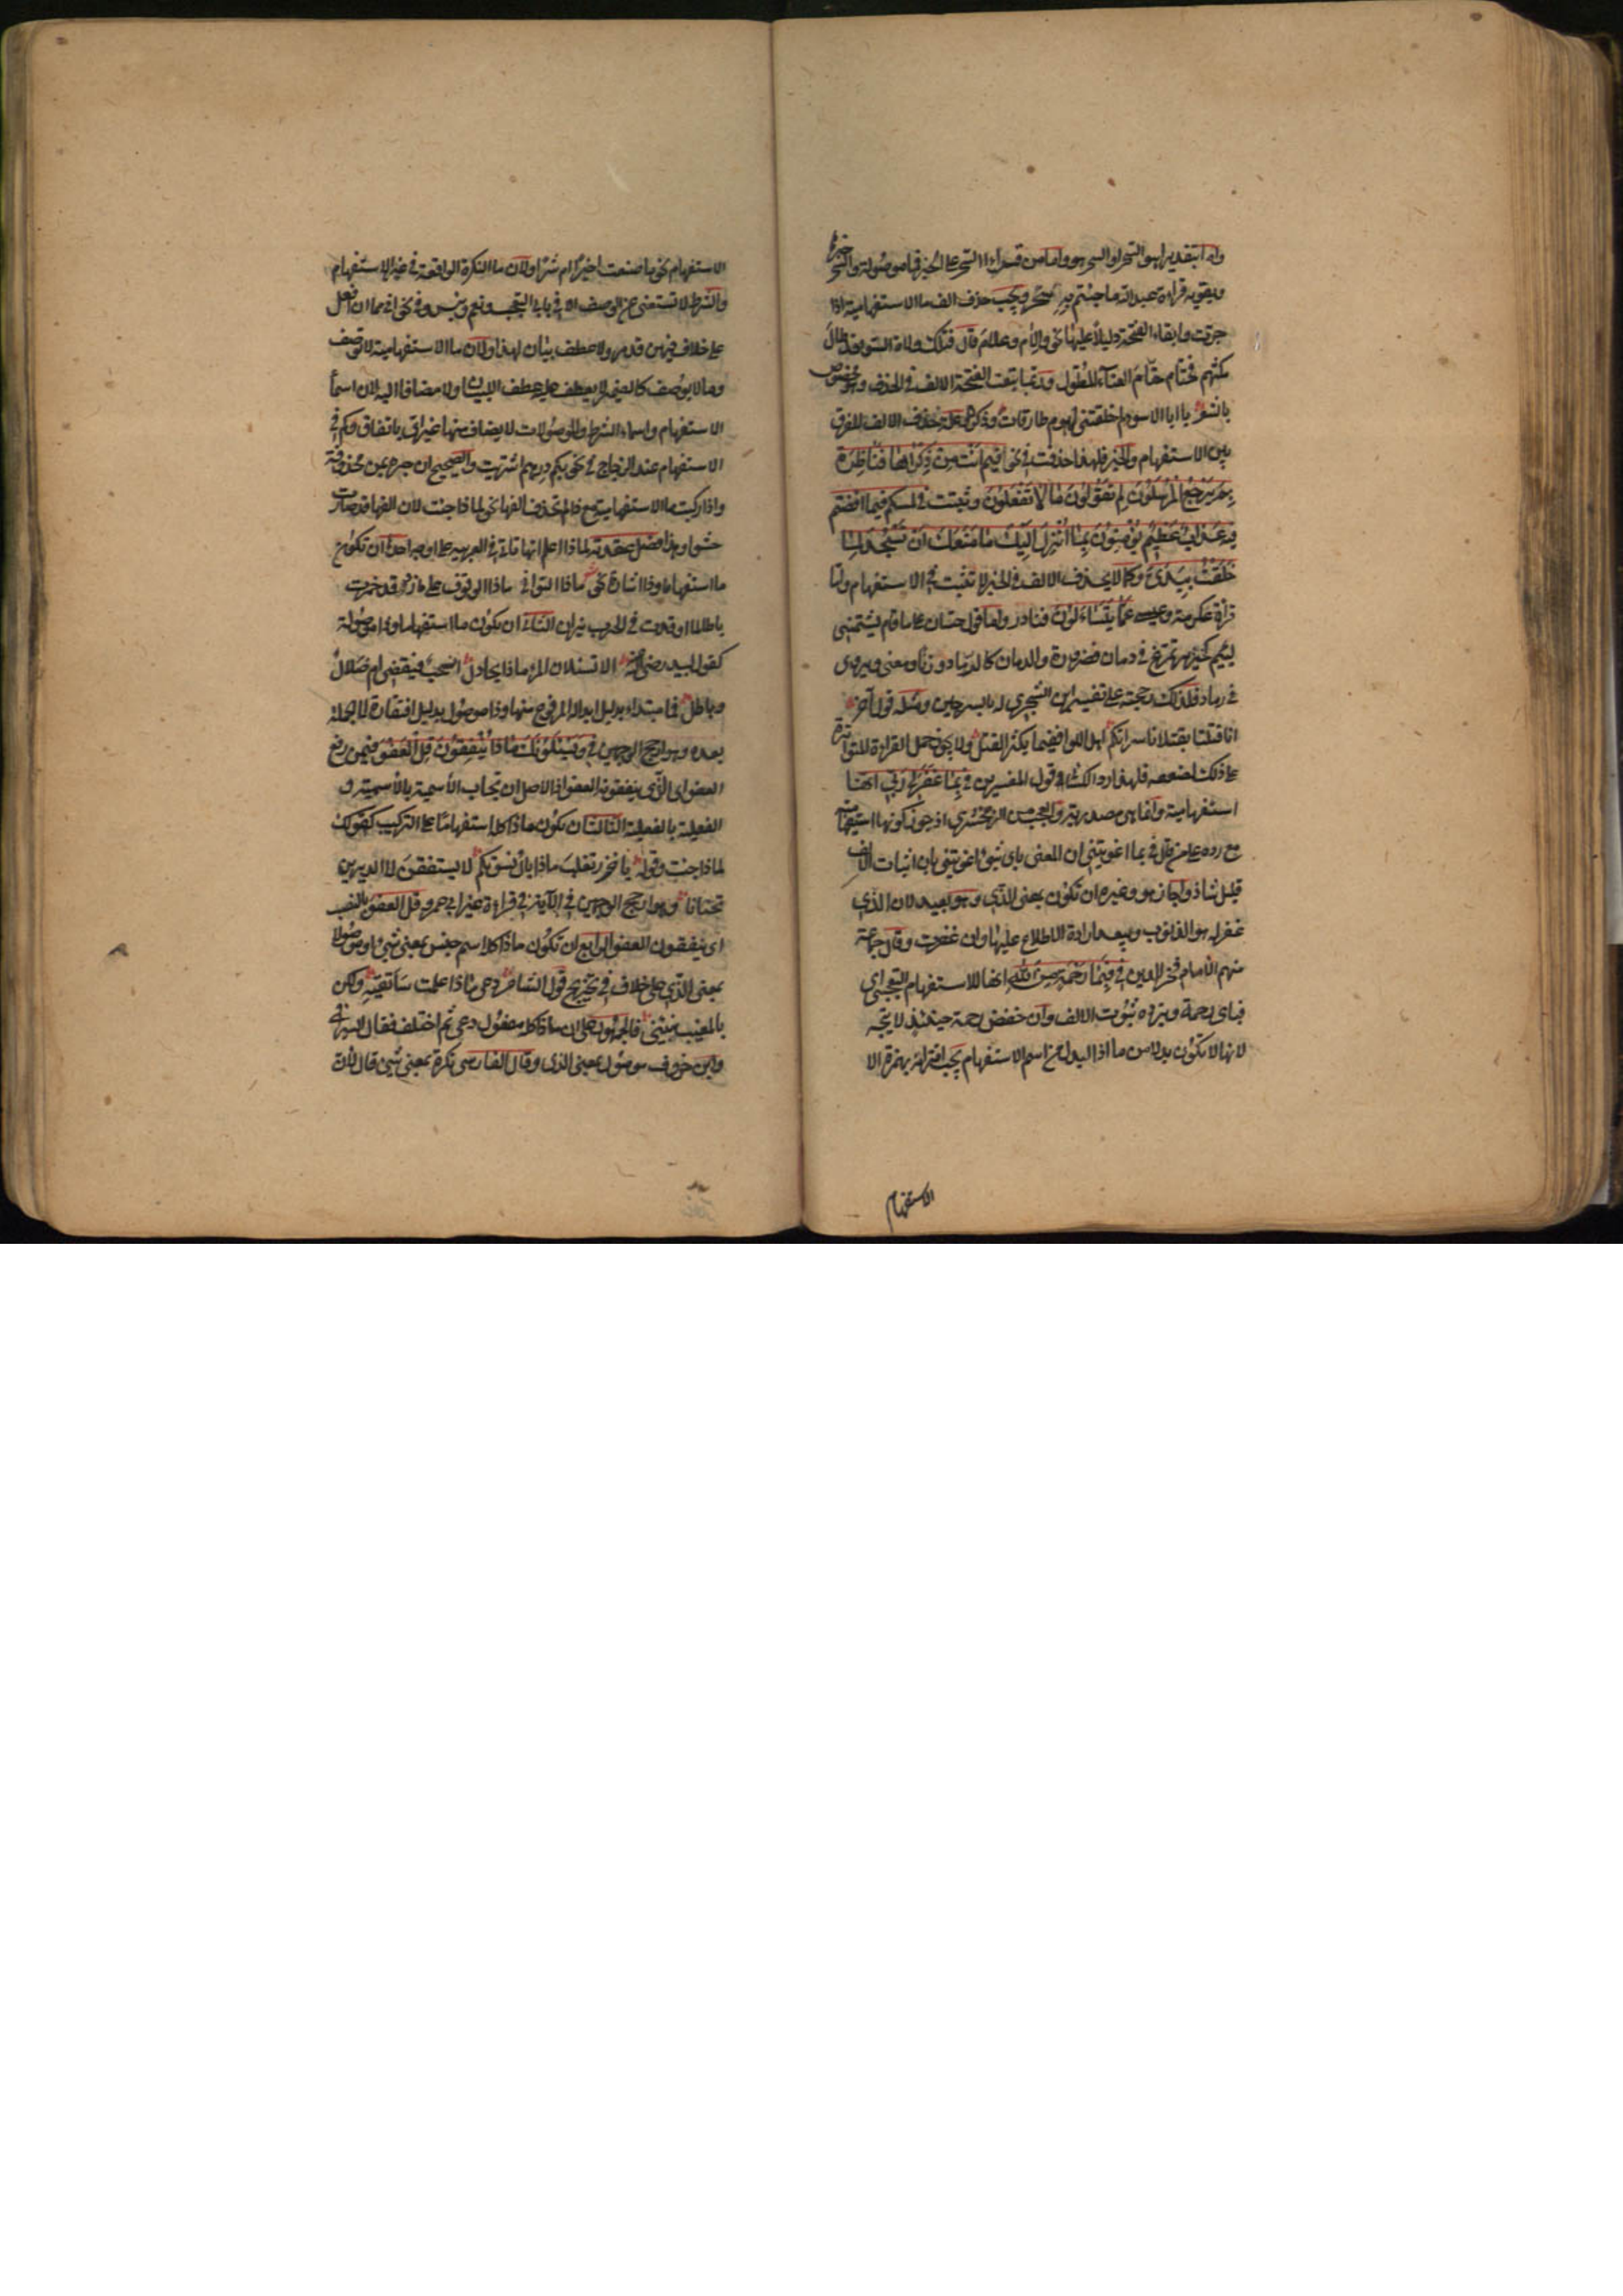 واما بتقدير اهو السحر او السحر هو واما من قرا السحر على الخبر فما موصولة والسحر خبرها
ويقويه قراءة عبد الله ما جئتم به سحر ويجب حذف الف ما الاستفهامية اذا
جرت وابقاء الفتحة دليلا عليها نحو والام وعلام قال فتلك ولاة السوء قد طال
مكثهم فحتام حتام العناء المطول وربما تبعت الفتحة الالف في الحذف وهو مخصوص
بالشعر يا ابا الاسود لم خلفتني لهموم طارقات وذكر وعلة حذف الالف الفرق
بين الاستفهام والخبر فلهذا حذفت في نحو فيم انت من ذكراها فناظرة
بم يرجع المرسلون لم تقولون ما لا تفعلون وثبتت في لمسكم فيما افضتم
فيه عذاب عظيم يؤمنون بما انزل اليك ما منعك ان تسجد لما
خلقت بيدي وكما لا يحذف الالف في الخبر لا تثبت في الاستفهام واما
قراءة عكرمة وعيسى عما يتساءلون فنادر واما قول حسان على ما قام يشتمني
لئيم كخنزير تمرغ في دمان فضرورة والدمان كالرماد وزنا ومعنى ويروى
في رماد فلذلك رجحته على تفسير ابن الشجري له بالسرجين ومثله قول آخر
انا قتلنا بقتلانا سراتكم اهل اللوا ففيما يكثر القتل ولا يجوز حمل القراءة المتواترة
على ذلك لضعفه فلهذا رد الكسائي قول المفسرين في بما غفر لي ربي انها
استفهامية وانما هي مصدرية والعجب من الزمخشري اذ جوز كونها استفهامية
مع رده على من قال في بما اغويتني ان المعنى باي شيء اغويتني بان اثبات الالف
قليل شاذ واجاز هو وغيره ان تكون بمعنى الذي وهو بعيد لان الذي
غفر له هو الذنوب ويبعد ارادة الاطلاع عليها وان غفرت وقال جماعة
منهم الامام فخر الدين في فبما رحمة من الله انها للاستفهام التعجبي اي
فباي رحمة ويرده ثبوت الالف وان خفض رحمة حينئذ لا يتجه
لانها لا تكون بدلا من ما اذ المبدل من اسم الاستفهام يجب اقترانه بهمزة الا
الاستفهام
الاستفهام نحو ما صنعت اخيرا ام شرا ولان ما النكرة الواقعة في غير الاستفهام
والشرط لا تستغنى عن الوصف الا في بابي التعجب ونعم وبئس وفي نحو اني مما ان افعل
على خلاف فيهن قد مر ولا عطف بيان لهذا ولان ما الاستفهامية لا توصف
وما لا يوصف كالضمير لا يعطف عليه عطف البيان ولا مضافا اليه لان اسما
الاستفهام واسماء الشرط والموصولات لا يضاف منها غير اي باتفاق وكم في
الاستفهام عند الزجاج في نحو بكم درهم اشتريت والصحيح ان جره بمن محذوفة
واذا ركبت ما الاستفهامية مع ذا لم تحذف الفها نحو لماذا جئت لان الفها قد صارت
حشوا وهذا فصل عقدته لماذا اعلم انها تاتي في العربية على اوجه احدها ان تكون
ما استفهاما وذا اشارة نحو ماذا التواني ماذا الوقوف على نار وقد خمدت
يا طالما اوقدت في الحرب نيران الثاني ان يكون ما استفهاما وذا موصولة
كقول لبيد رضي الله عنه الا تسئلان المرء ماذا يحاول انحب فيقضى ام ضلال
وباطل فما مبتداء بدليل ابداله المرفوع منها وذا موصول بدليل افتقاره للجملة
بعده وهو ارجح الوجهين في ويسئلونك ماذا ينفقون قل العفو فيمن رفع
العفو اي الذي ينفقونه العفو اذ الاصل ان تجاب الأسمية بالأسمية و
الفعلية بالفعلية الثالث ان يكون ماذا كله استفهاما على التركيب كقولك
لماذا جئت وقوله يا خزر تغلب ماذا بال نسوتكم لا يستفقن الى الديرين
تحنانا وهو ارجح الوجهين في الآية في قراءة غير ابي عمرو قل العفو بالنصب
اي ينفقون العفو الرابع ان تكون ماذا كله اسم جنس بمعنى شيء او موصولا
بمعنى الذي على خلاف في تخريج قول الشاعر دعي ماذا علمت سأتقيه ولكن
بالمغيب نبئيني فالجمهور على ان ماذا كله مفعول دعي ثم اختلف فقال السيرافي
وابن خروف موصول بمعنى الذي وقال الفارسي نكرة بمعنى شيء قال لان